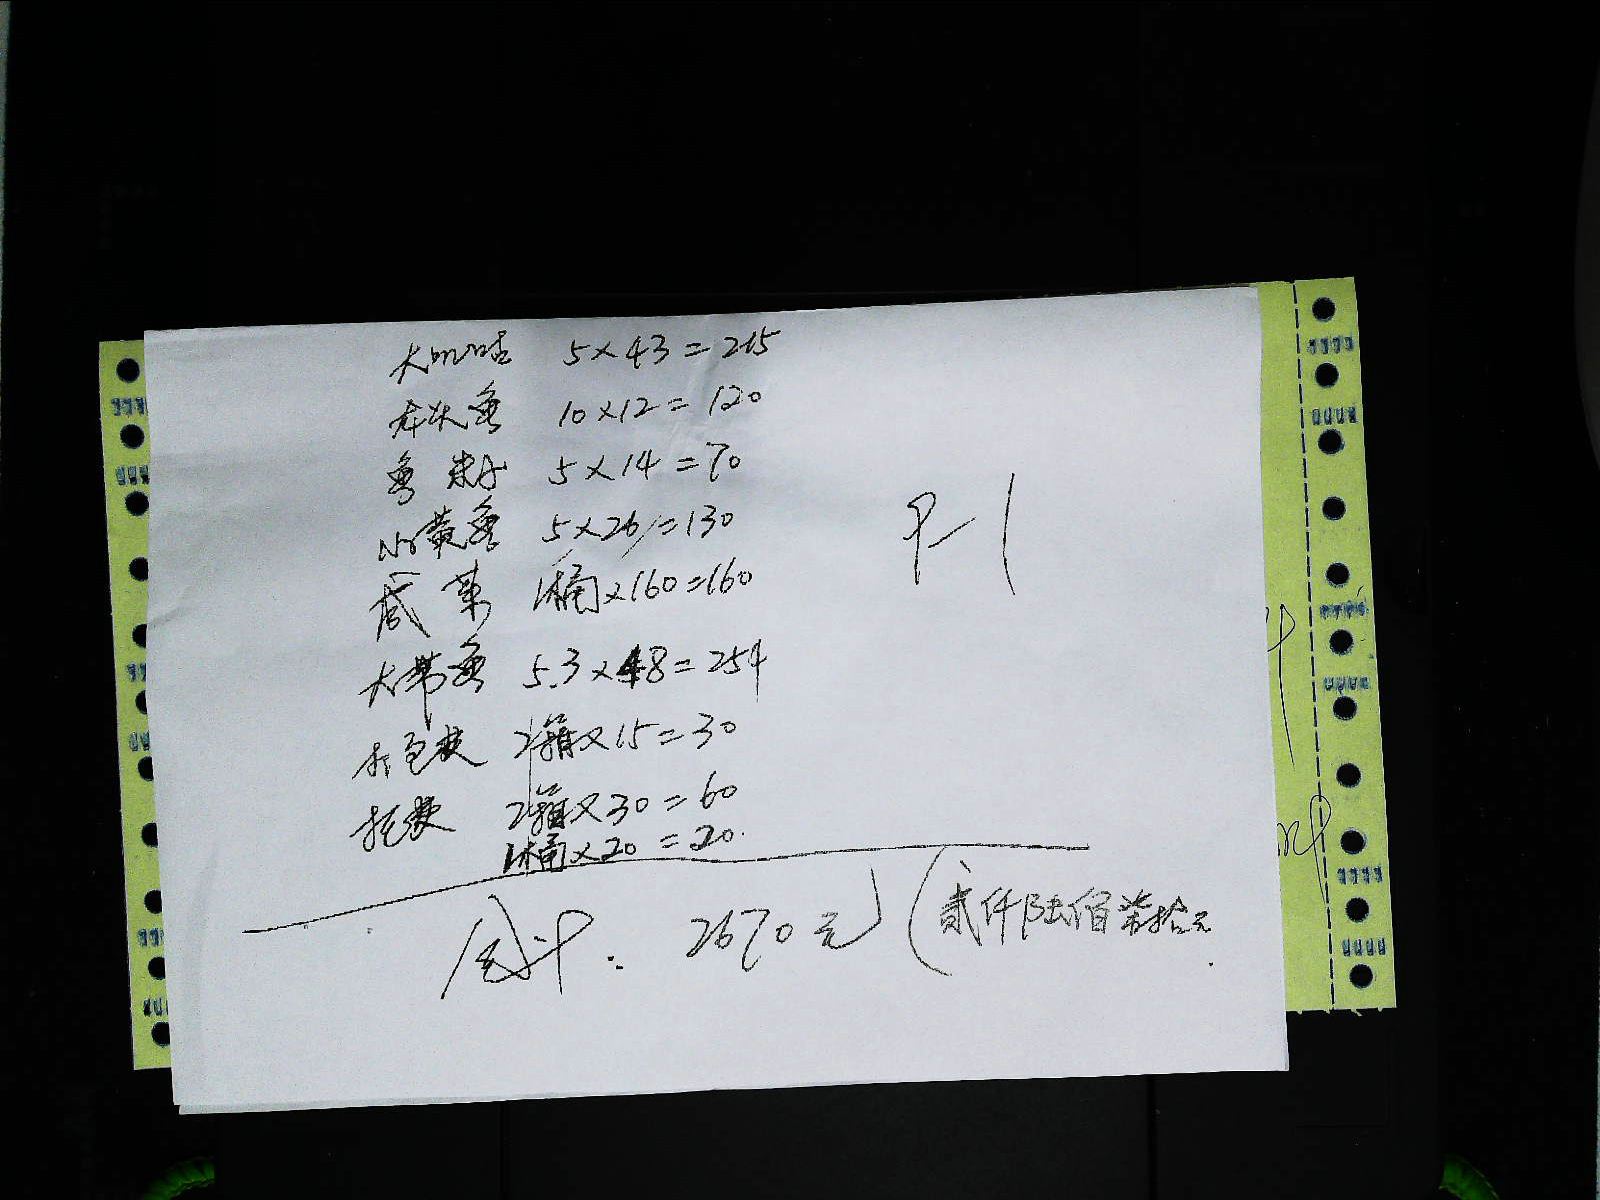 大 5×43=215
鱼 10×12=120
鱼 籽 5×14=70
小黄鱼 5×26=130
咸菜 1桶×160=160
大带鱼 5.3×48=254
打包费 2箱×15=30
托费 2箱×30=60
1桶×20=20
P-1
合计: 2670元(贰仟陆佰柒拾元